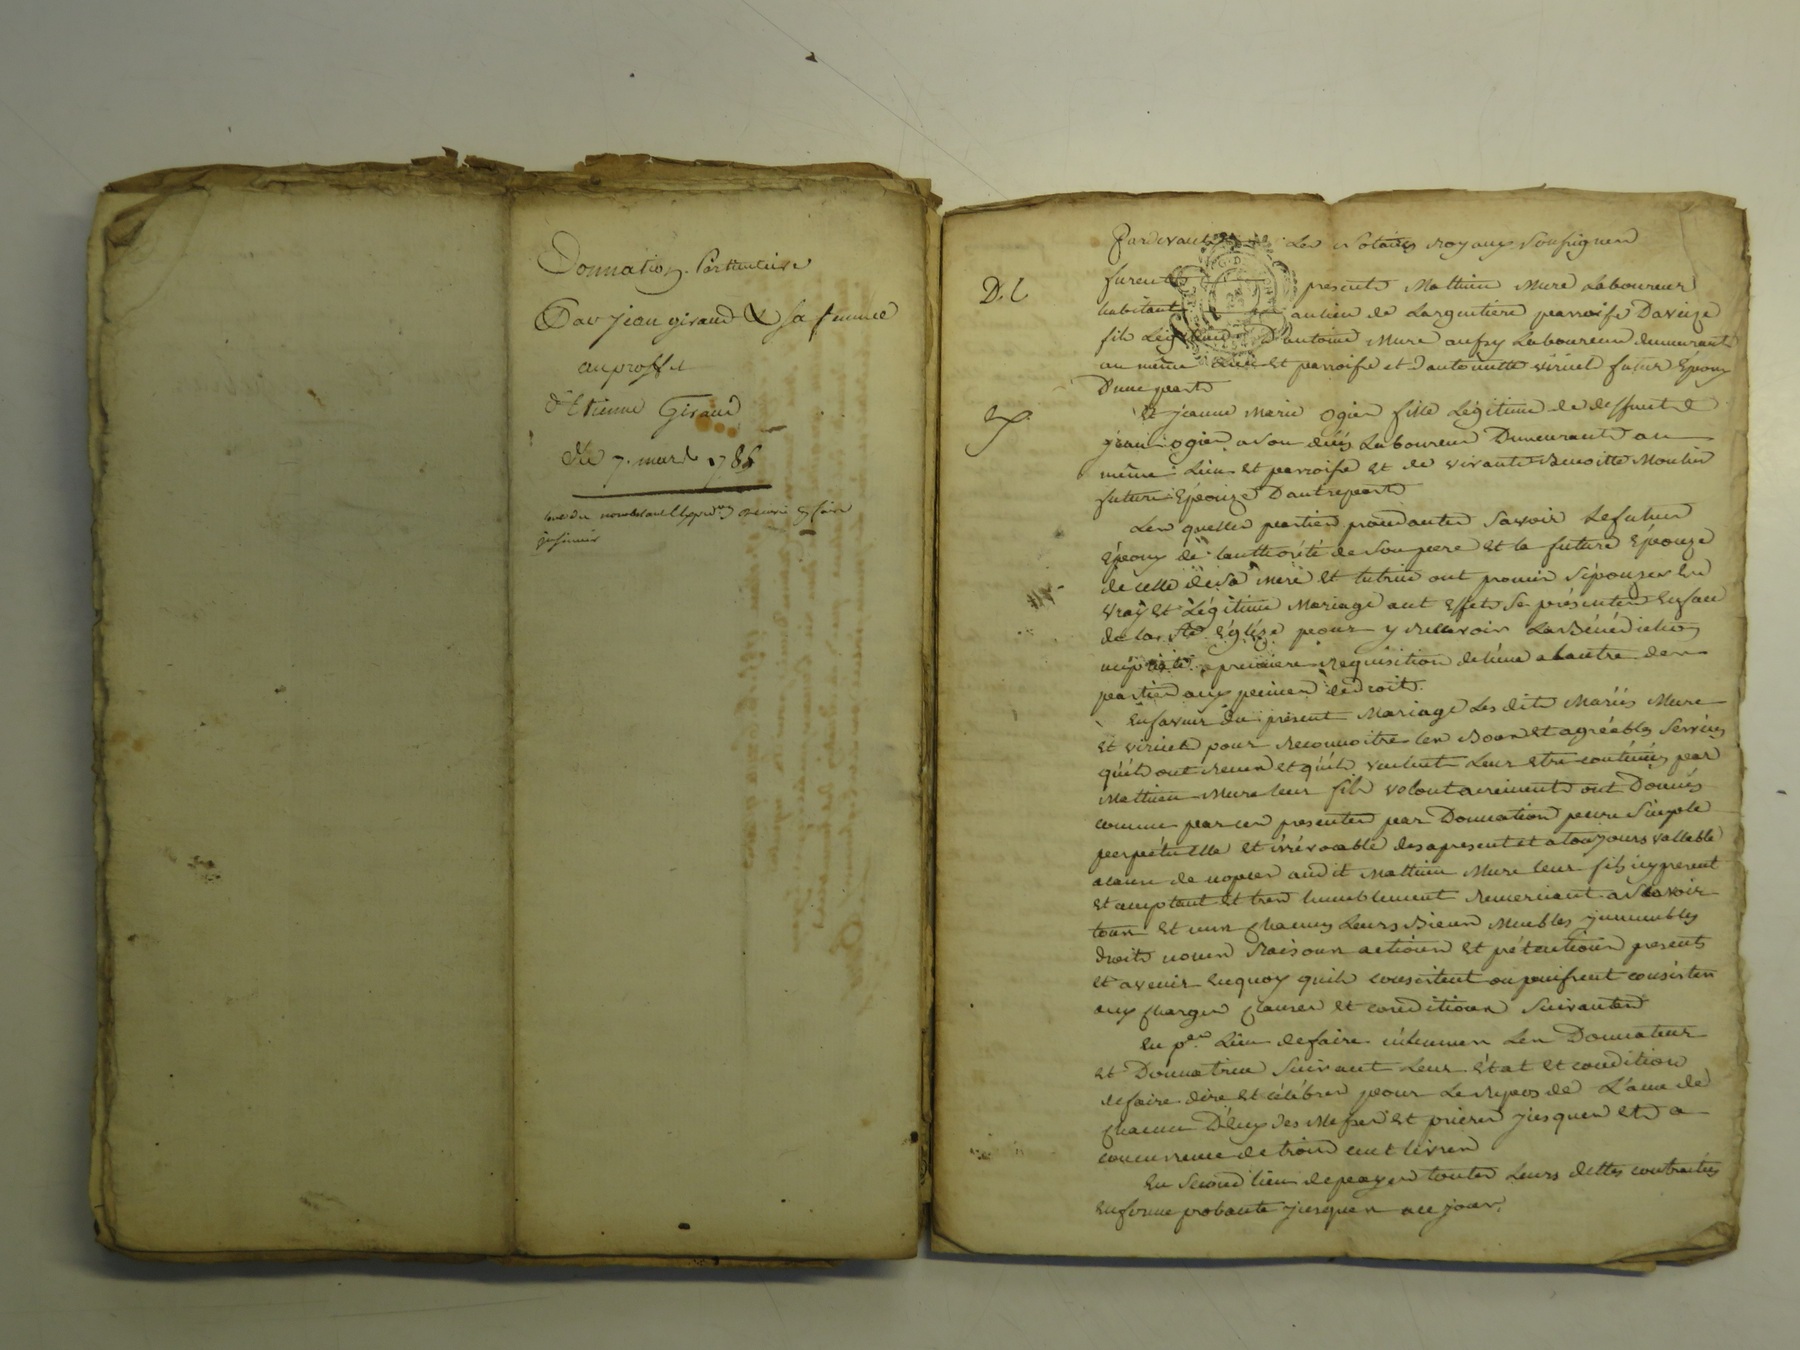 Donnation Particuliere
Par jean giraud & sa femme
au proffit
d'Etienne Giraud
du 7. mars 1786
Pardevant Les Notaires royaux Soussignes
D. l
furent presents Mathieu Mure Laboureur
habitant au lieu de Largentiere parroisse Daveize
fils Legitime D'antoine Mure aussy Laboureur demeurant
au même Lieu et parroisse et d'antoinette viricel futur Epoux
D'une part
Et jeanne Marie Ogier fille Légitime de deffunt
jean ogier a son décés Laboureur Demeurant au
même Lieu et parroisse et de vivante Benoitte Moulin
future Epouze D'autre part
Les quelles parties procedantes Savoir Le futur
Epoux de l'authorité de Son pere et la future Epouze
de celle de Sa Mere et tutrice ont promis S'épouzer En
vray et Légitime Mariage a cet Effet Se présenter En face
de la Ste Eglize pour y recevoir La Bénédiction
nuptiale a premiere requisition de L'une a Lautre des
parties aux peines de droit.
En faveur du présent Mariage Les dits Mariés Mure
et viricel pour reconnoitre les Bons et agréables Services
qu'ils ont recus et qu'ils veulent Leur etre continués par
Mathieu Mure leur fils volontairement ont Donnés
comme par ces presentes par Donnation pure Simple
perpétuelle et irrévocable des a present et a toujours vallable
a cause de noces audit Mathieu Mure leur fils icy present
et acceptant et tres humblement remerciant a Scavoir
tous et uns chacuns Leurs Biens Meubles jmmeubles
droits noms Raisons actions et prétentions presents
et avenir En quoy quils consistent ou puissent consister
aux charges clauses et conditions Suivantes
En per. Lieu de faire inhumer Les Donnateur
et Donnatrice Suivant Leur état et condition
de faire dire et célébrer pour Le repos de L'ame de
chacun D'eux des Messes et prieres jusques et a
concurrence de trois cent livres
En Second lieu de payer toutes Leurs dettes contractées
En forme probante jusques a ce jour.